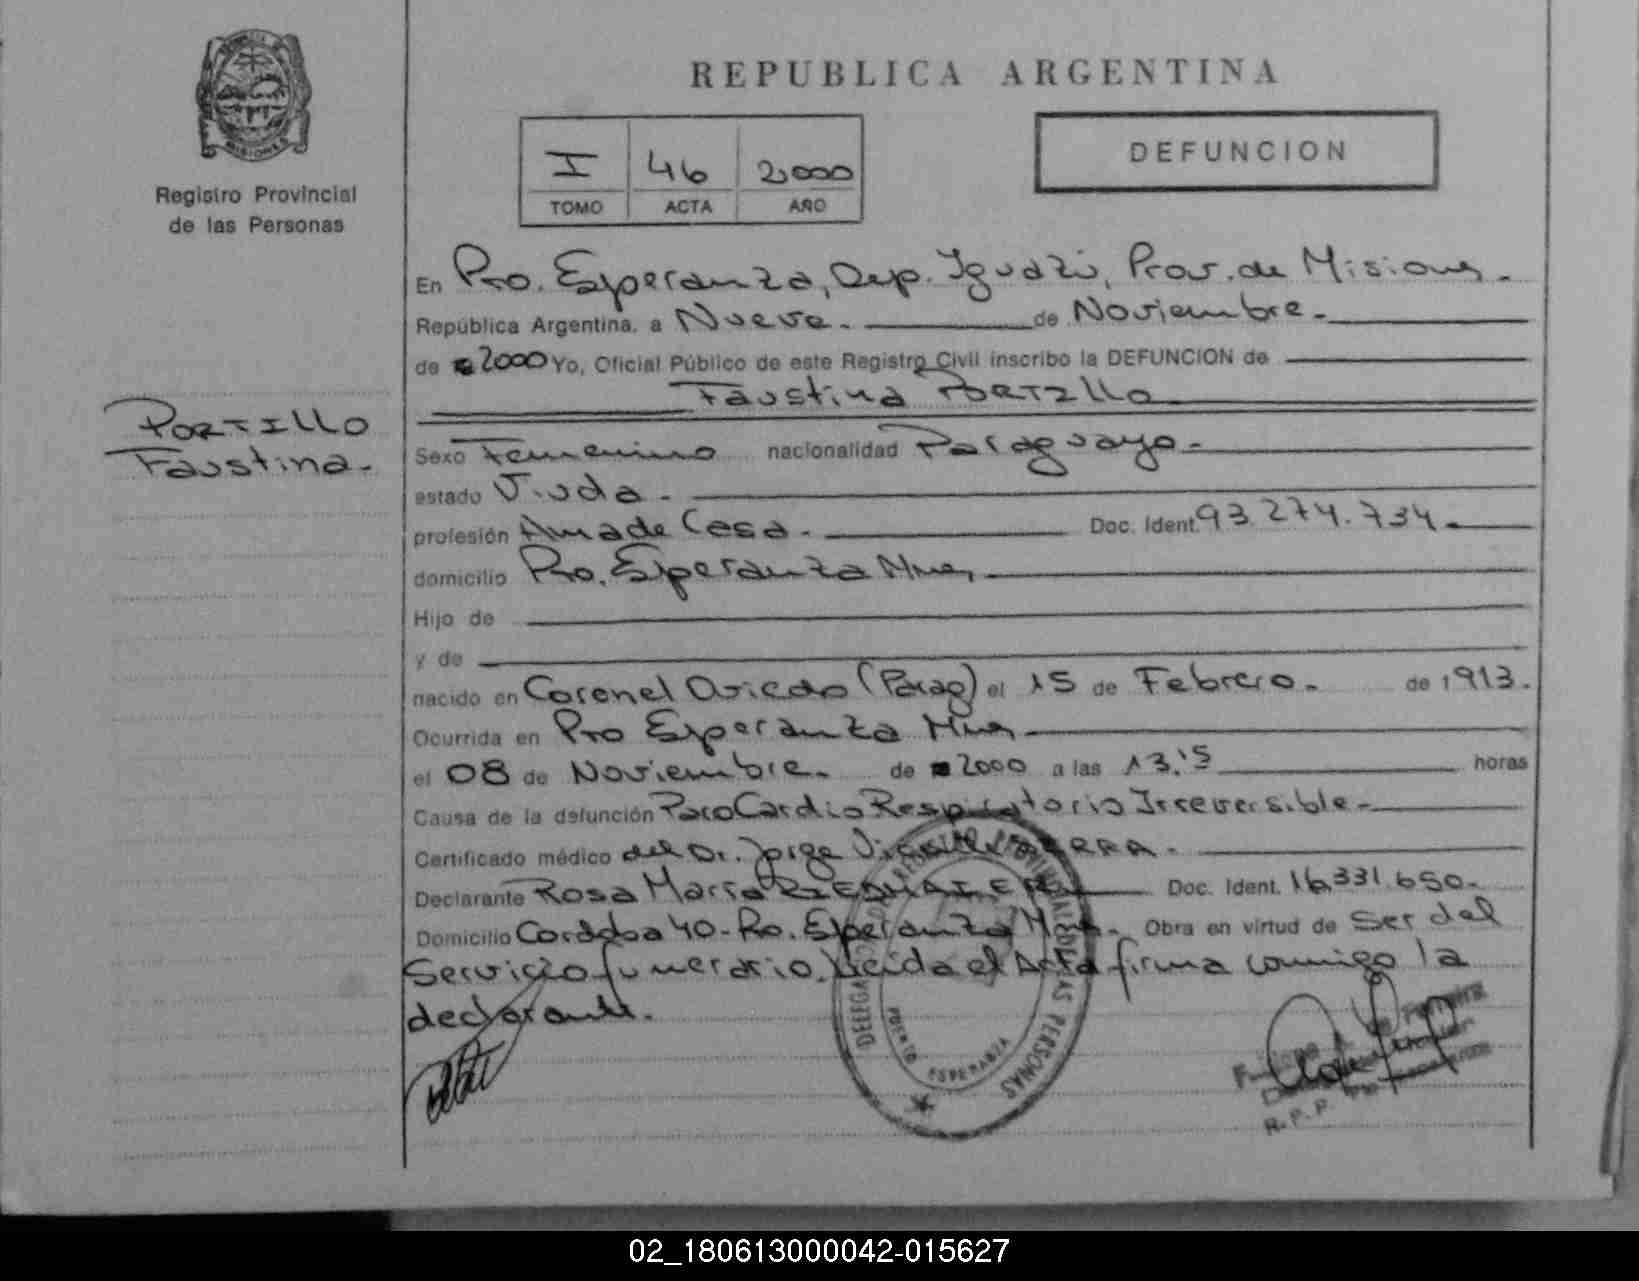 REPUBLICA ARGENTINA
I 46 2000
TOMO ACTA AÑO
DEFUNCION
MISIONES
Registro Provincial
de las Personas
En Pto. Esperanza, Dep. Iguazú, Prov. de Misiones.
República Argentina, a Nueve. de Noviembre.
de 2000 Yo, Oficial Público de este Registro Civil inscribo la DEFUNCION de
Faustina PORTILLO
PORTILLO
Faustina.
Sexo Femenino nacionalidad Paraguaya.
estado Viuda.
profesión Ama de Casa. Doc. Ident. 93.274.734.
domicilio Pto. Esperanza Mnes,
Hijo de
y de
nacido en Coronel Oviedo (Parag) el 15 de Febrero. de 1913.
Ocurrida en Pto Esperanza Mnes
el 08 de Noviembre. de 2000 a las 13.15 horas
Causa de la defunción Paro Cardio Respiratorio Irreversible.
Certificado médico del Dr. Jorge
Declarante Rosa María Doc. Ident. 16.331.650.
Domicilio Cordoba 40 - Pto. Esperanza Mnes. Obra en virtud de Ser del
Servicio funerario. Leída el Acta firma conmigo la
declarante.
DELEGACION REGISTRO PROVINCIAL DE LAS PERSONAS
PUERTO ESPERANZA
de Ferreira
R.P.P.
02_180613000042-015627